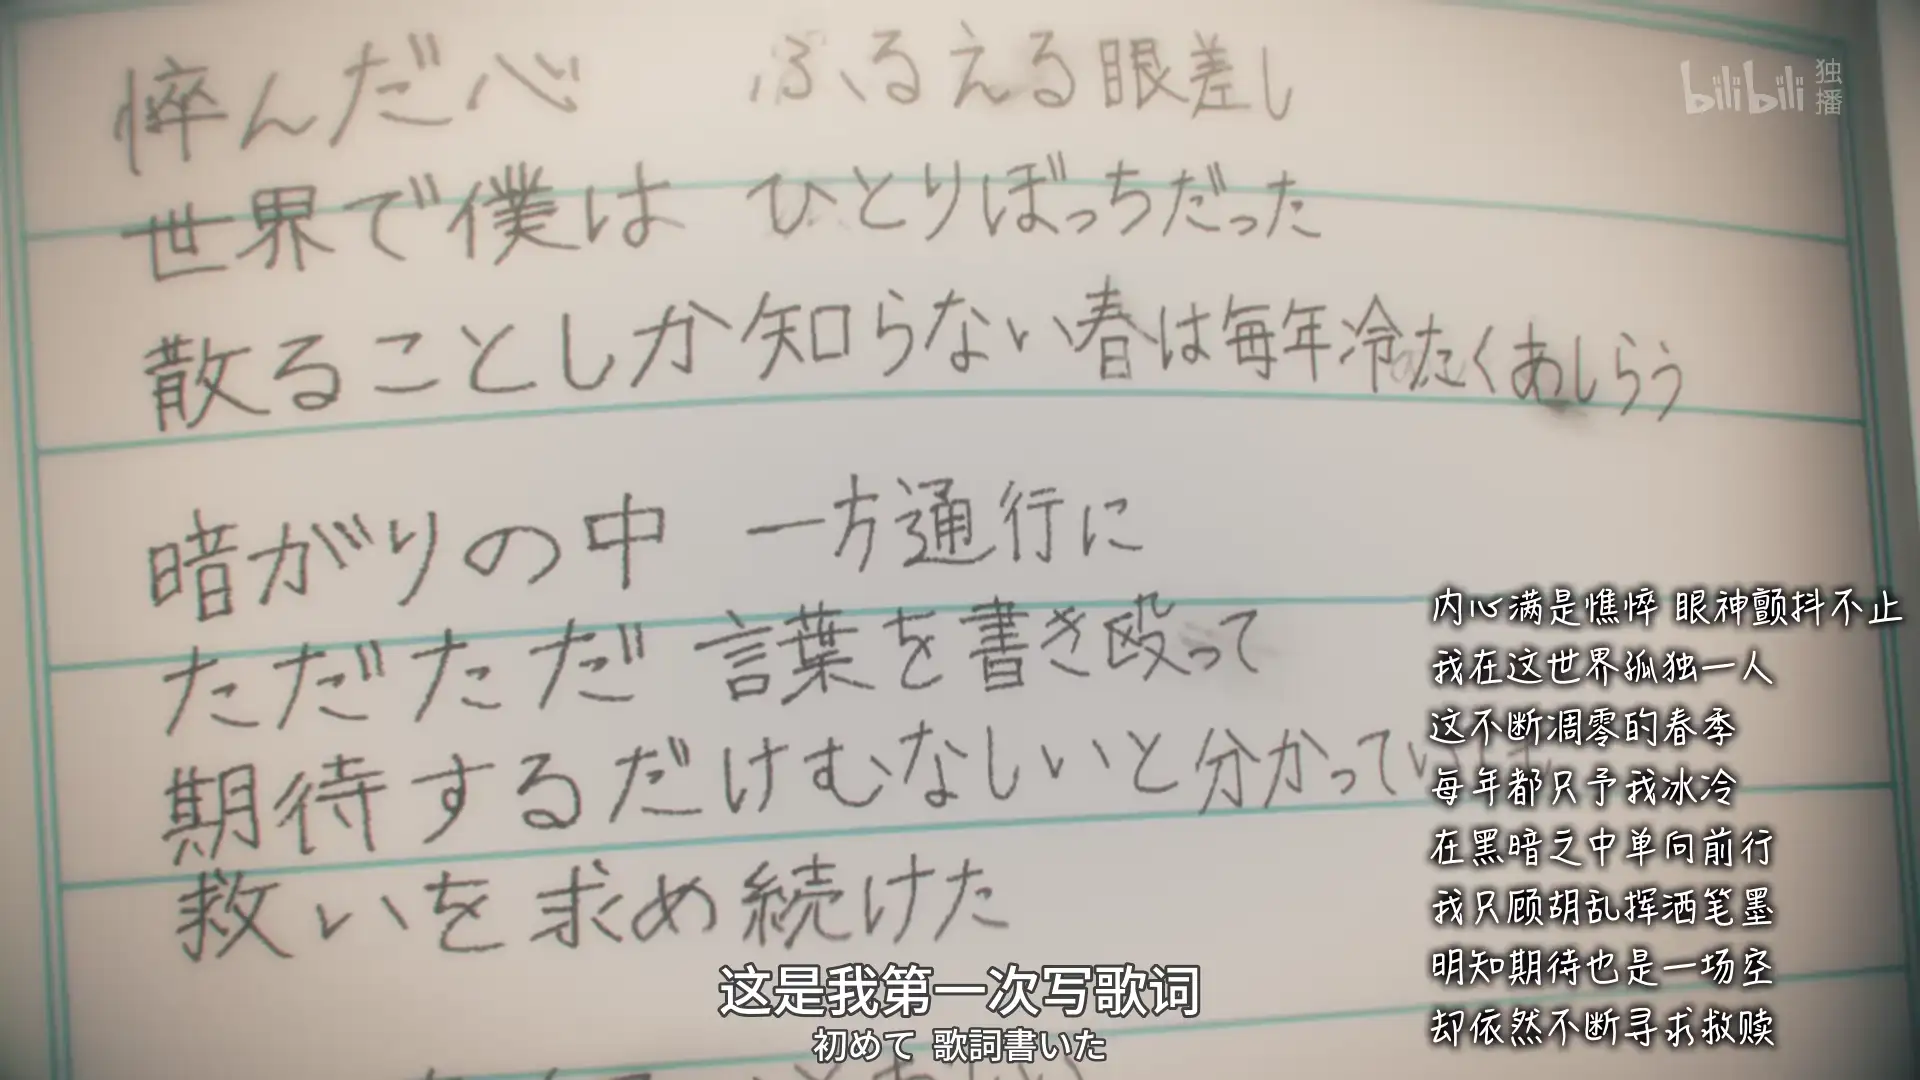 悴んだ心 ふるえる眼差し
世界で僕は ひとりぼっちだった
散ることしか知らない春は毎年冷たくあしらう
暗がりの中 一方通行に
ただただ 言葉を書き殴って
期待するだけむなしいと分かってい
救いを求め続けた
bilibili 独播
内心满是憔悴 眼神颤抖不止
我在这世界孤独一人
这不断凋零的春季
每年都只予我冰冷
在黑暗之中单向前行
我只顾胡乱挥洒笔墨
明知期待也是一场空
却依然不断寻求救赎
这是我第一次写歌词
初めて 歌詞書いた